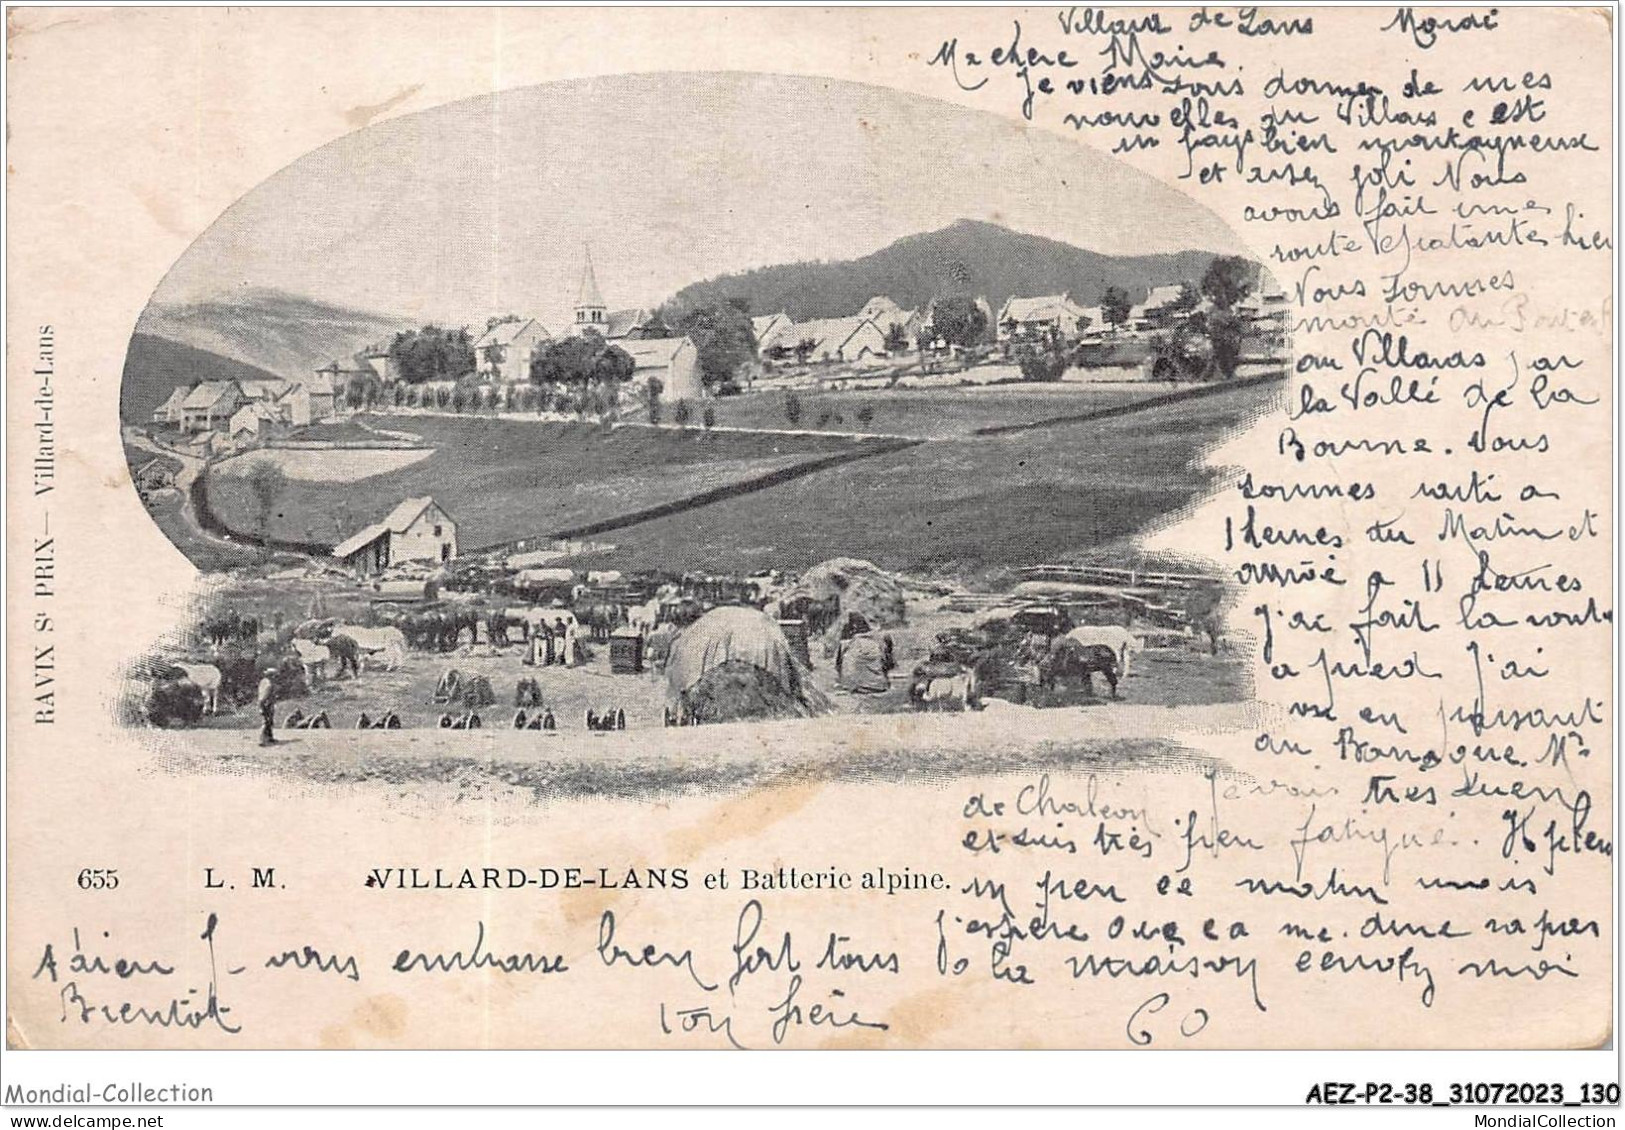 Villard de Lans Mardi
Ma chere Marie
Je viens vous donner de mes
nouvelles du Villars c est
un pays bien montagneux
et assez joli Nous
avons fait une
route hier
Nous sommes
monté du Pont en
au Villards par
la Vallé de la
Bourne. Nous
sommes parti a
1 heures du Matin et
arrivé a 11 heures
J'ai fait la route
a pied J'ai
vu en passant
au Baraque. Mr
de Chaléon Je vais très bien
et suis très peu fatigué. Il pleu
un peu ce matin mais
j'espère que ca me. dure pas
a la maison
Adieu Je vous embrasse bien fort tous
Bientôt ton frère
RAVIX St PRIX — Villard-de-Lans
655 L. M. VILLARD-DE-LANS et Batterie alpine.
Mondial-Collection
AEZ-P2-38_31072023_130
MondialCollection